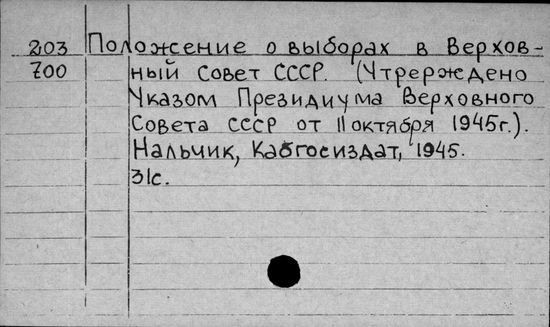 203 Положение о выборах в Верхов-
700 ный Совет СССР. (Утрерждено
Указом Президиума Верховного
Совета СССР от 11 октября 1945г.).
Нальчик, Кабгосиздат, 1945.
31с.